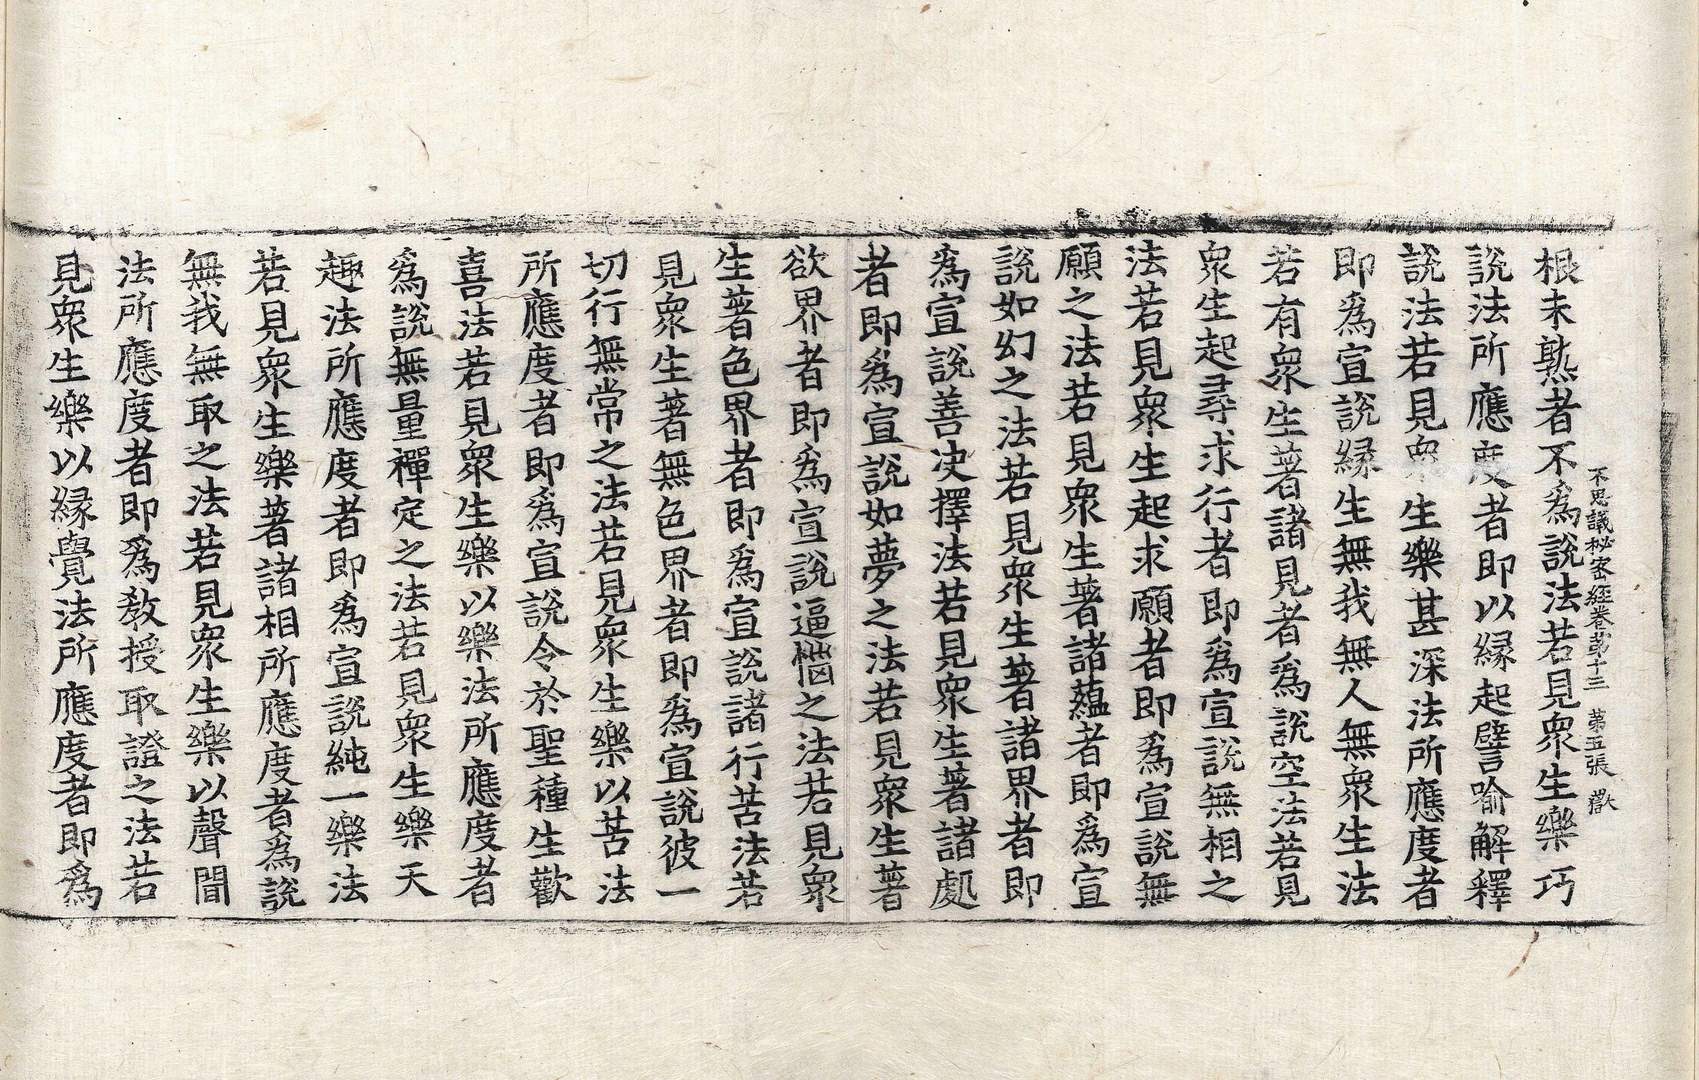 不思議秘密經卷第十三　第五張　歡
根未熟者不爲說法若見衆生樂巧
說法所應度者即以縁起譬喻解釋
說法若見衆生樂甚深法所應度者
即爲宣說縁生無我無人無衆生法
若有衆生著諸見者爲說空法若見
衆生起尋求行者即爲宣說無相之
法若見衆生起求願者即爲宣說無
願之法若見衆生著諸蘊者即爲宣
說如幻之法若見衆生著諸界者即
爲宣說善決擇法若見衆生著諸處
者即爲宣說如夢之法若見衆生著
欲界者即爲宣說逼惱之法若見衆
生著色界者即爲宣說諸行苦法若
見衆生著無色界者即爲宣說彼一
切行無常之法若見衆生樂以苦法
所應度者即爲宣說令於聖種生歡
喜法若見衆生樂以樂法所應度者
爲說無量禪定之法若見衆生樂天
趣法所應度者即爲宣說純一樂法
若見衆生樂著諸相所應度者爲說
無我無取之法若見衆生樂以聲聞
法所應度者即爲教授取證之法若
見衆生樂以縁覺法所應度者即爲